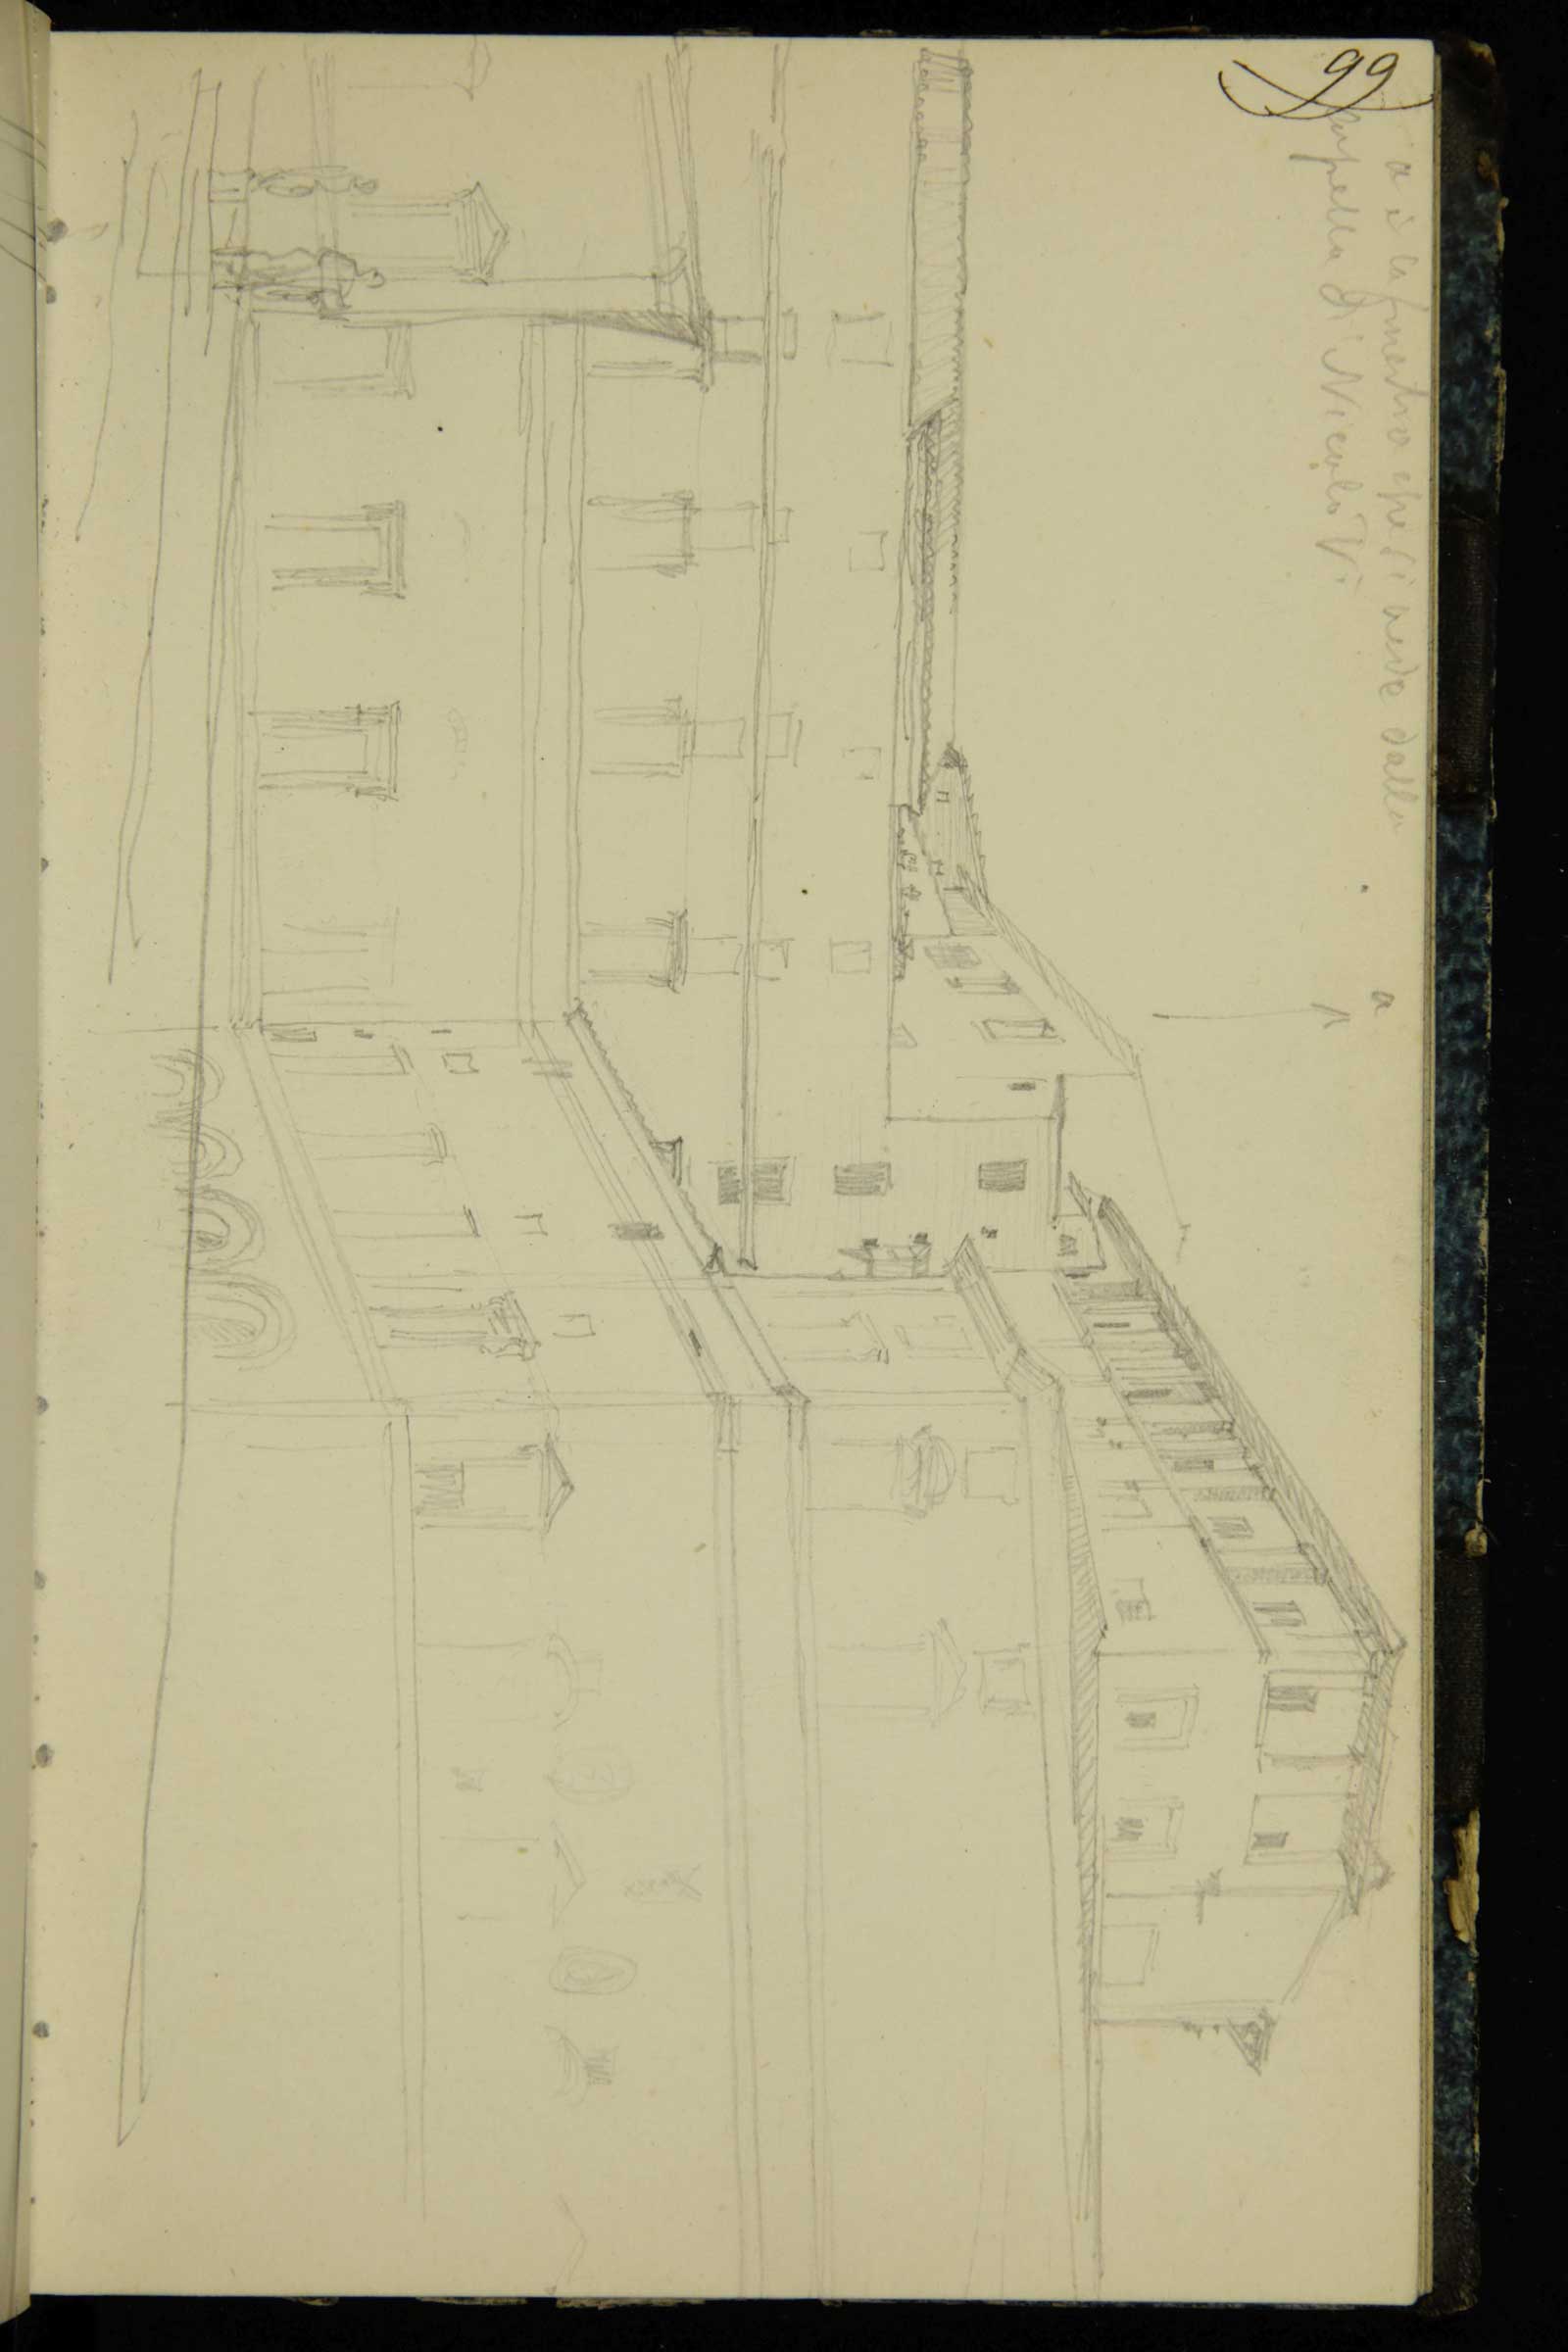 99
a è la finestra che si vede dalla
cappella di Nicolò V.
a